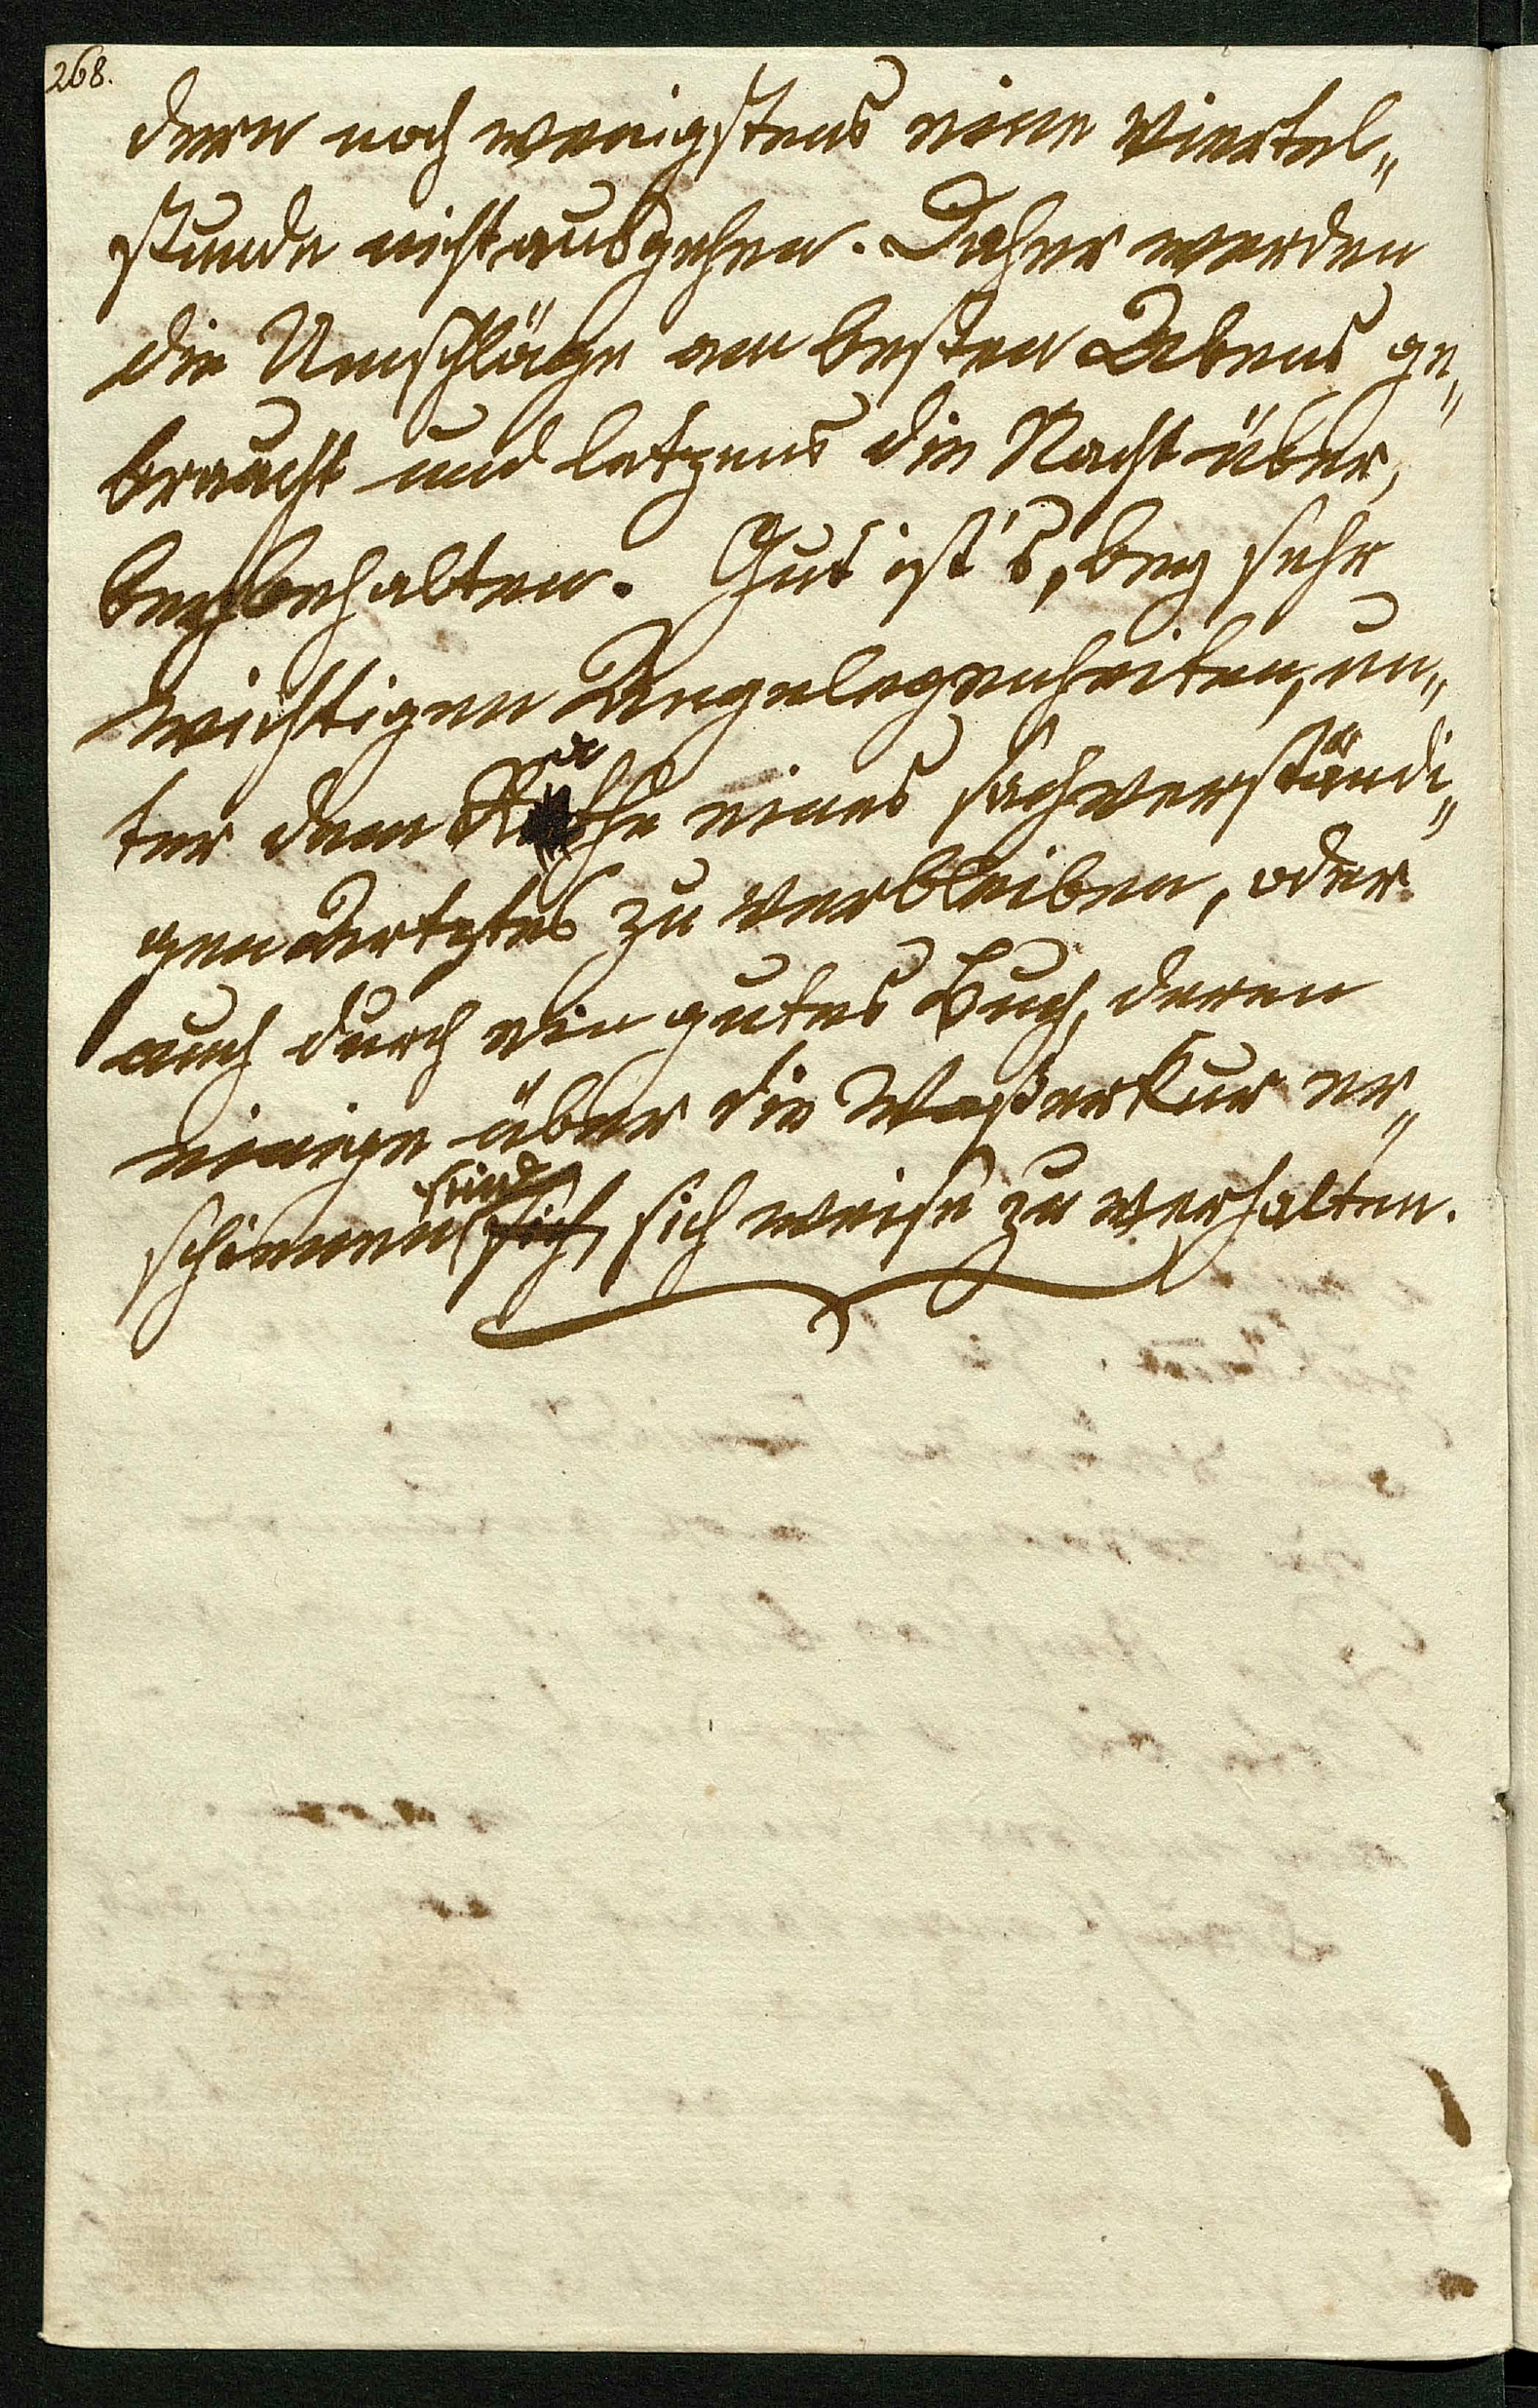 268.
dern noch wenigstens eine Viertel„
stunde nicht ausgehen. Daher werden
die Umschläge am besten Abens ge„
braucht und letzens die Nacht über,
beybehalten. Gut ist's, bey sehr
wichtigen Angelegenheiten, un„
ter dem Rathe eines sachverständi„
gen Artztes zu verbleiben, oder
auch durch ein gutes Buch, deren
einige über die Waßerkur er„
schinnen sind sich, sich weise zu verhalten.